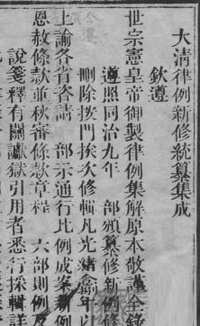 大清律例新修統纂集成
欽遵
世宗憲皇帝御製律例集解原本敬謹全錄
遵照同治九年　部頒纂修新例修
刪除按門挨次修輯凡光緒　年以
上諭各省咨請　部示通行比例成案新例
恩赦條款並秋審條款章程　六部則例及
說箋釋有關讞獄引用者悉行採輯詳